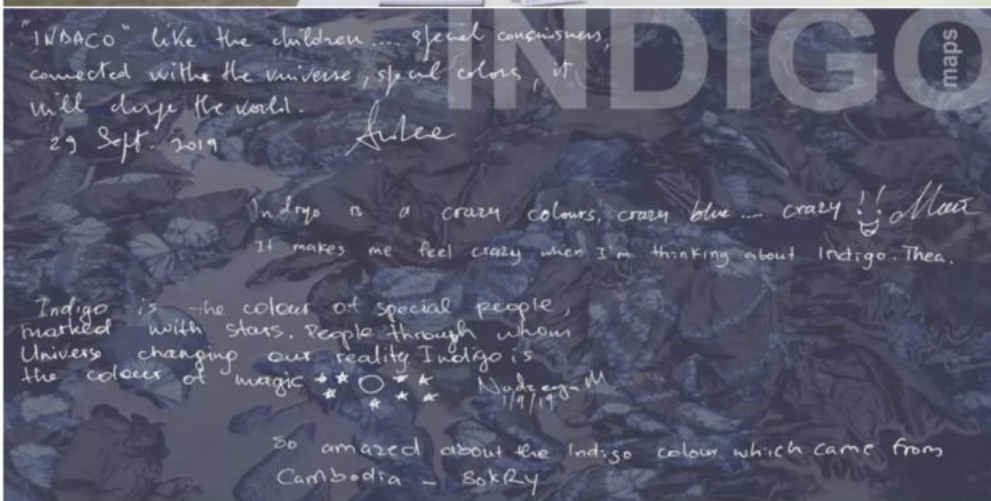 INDIGO
maps
"INDACO" like the children.... special consciousness,
connected with the universe, special colors, it
will change the world.
29 Sept. 2019
Indigo is a crazy colours, crazy blue .... crazy !!
It makes me feel crazy when I'm thinking about Indigo. Thea.
Indigo is the colour of special people,
marked with stars. People through whom
Universe changing our reality Indigo is
the colour of magic
1/9/19
So amazed about the Indigo colour which came from
Cambodia - SokRy